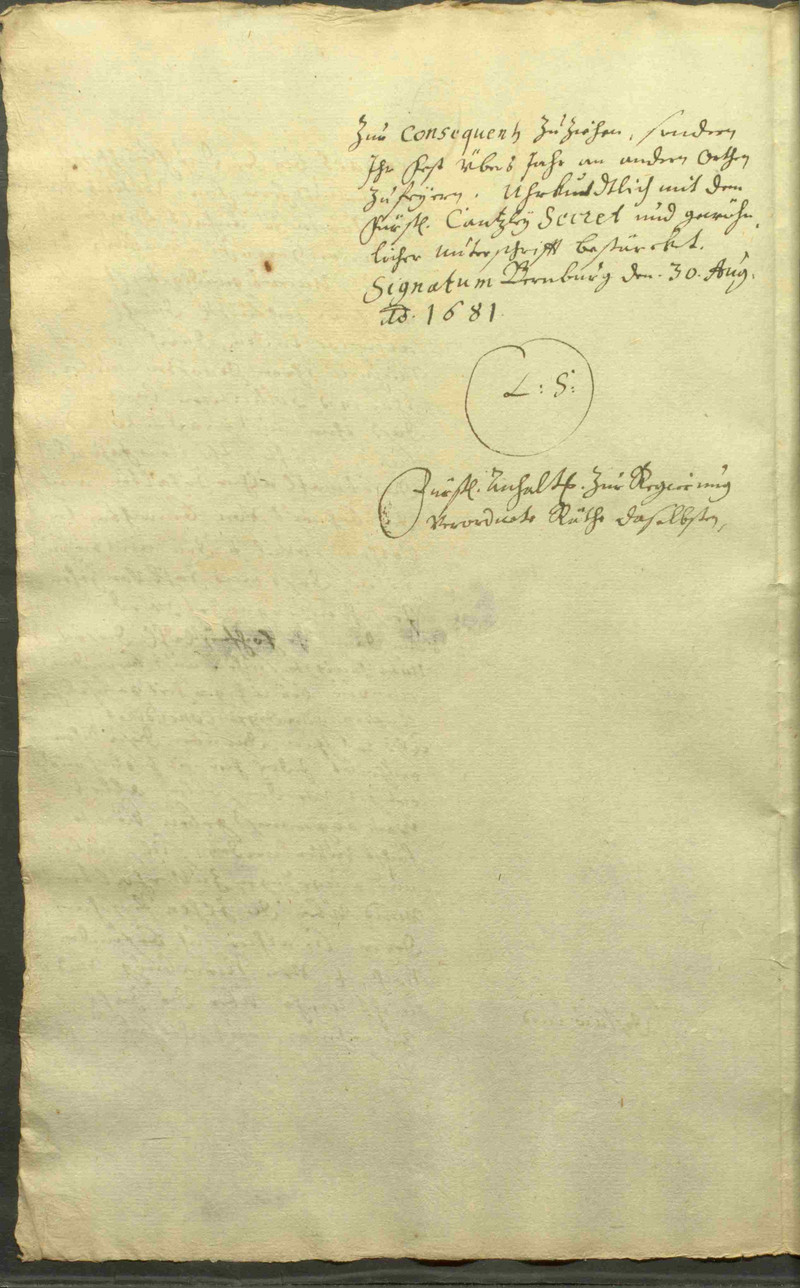 Zur Consequentz zuziehen, sondern
Ihr Fest übers Jahr an andern Orthen
zufeyern. Uhrkundtlich mit dem
Fürstl. Cantzley Secret und gewöhn
licher unterschrifft bestärcket.
Signatum Bernburg den. 30. Aug.
Ao. 1681.
L: S:
Fürstl. Anhaltl. Zur Regierung
Verordnete Räthe daselbsten,